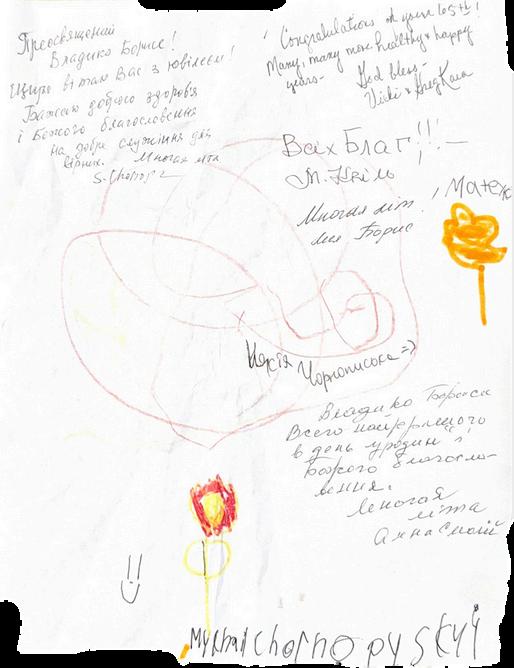 Преосвященний
Владико Борисе!
Щиро вітаю Вас з ювілеєм!
Бажаю доброго здоров'я
і Божого благословення
на добре служіння для
вірних. Многая літа
Congratulations on your 65th!
Many, many more healthy & happy
years-
God bless-
Vicki & Greg
Всіх Благ!!! —
Многая літ
Борис
Чорнописька =)
Владико Бориса
Всего найкращого
в день уродин і
Божого благосло-
вення.
Многая
літа
Анна
Mykhail Chornopyskyy